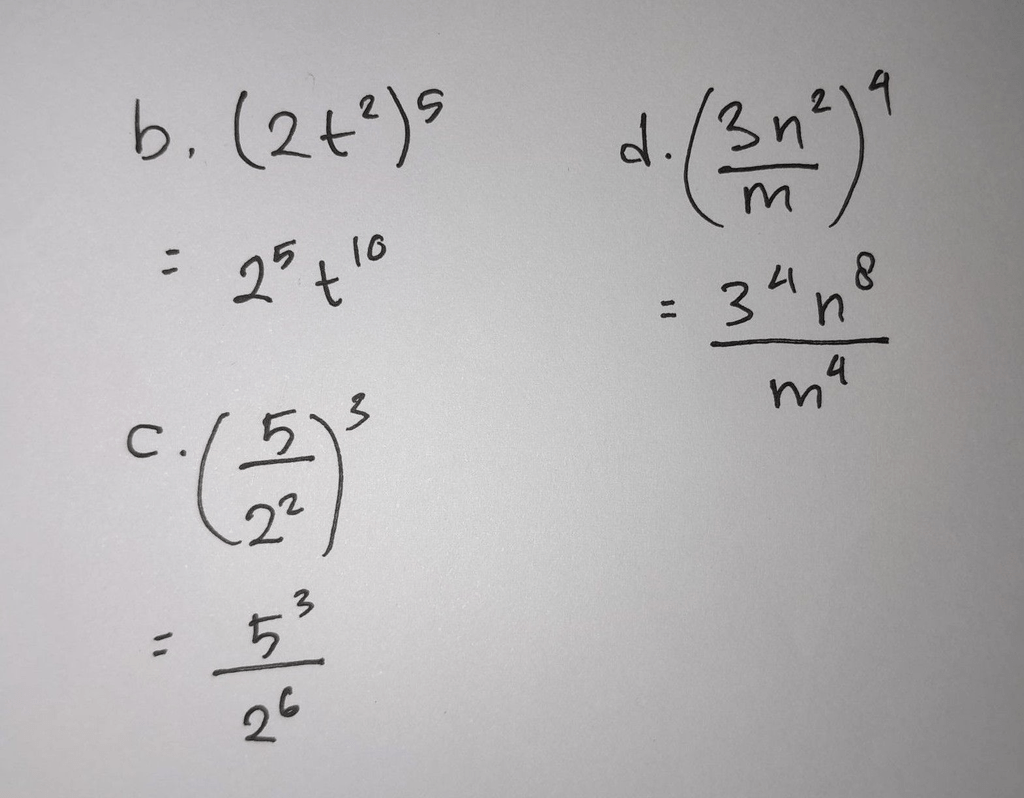 b. (2t²)⁵
= 2⁵ t¹⁰
c. (5/2²)³
= 5³/2⁶
d. (3n²/m)⁴
= 3⁴ n⁸/m⁴